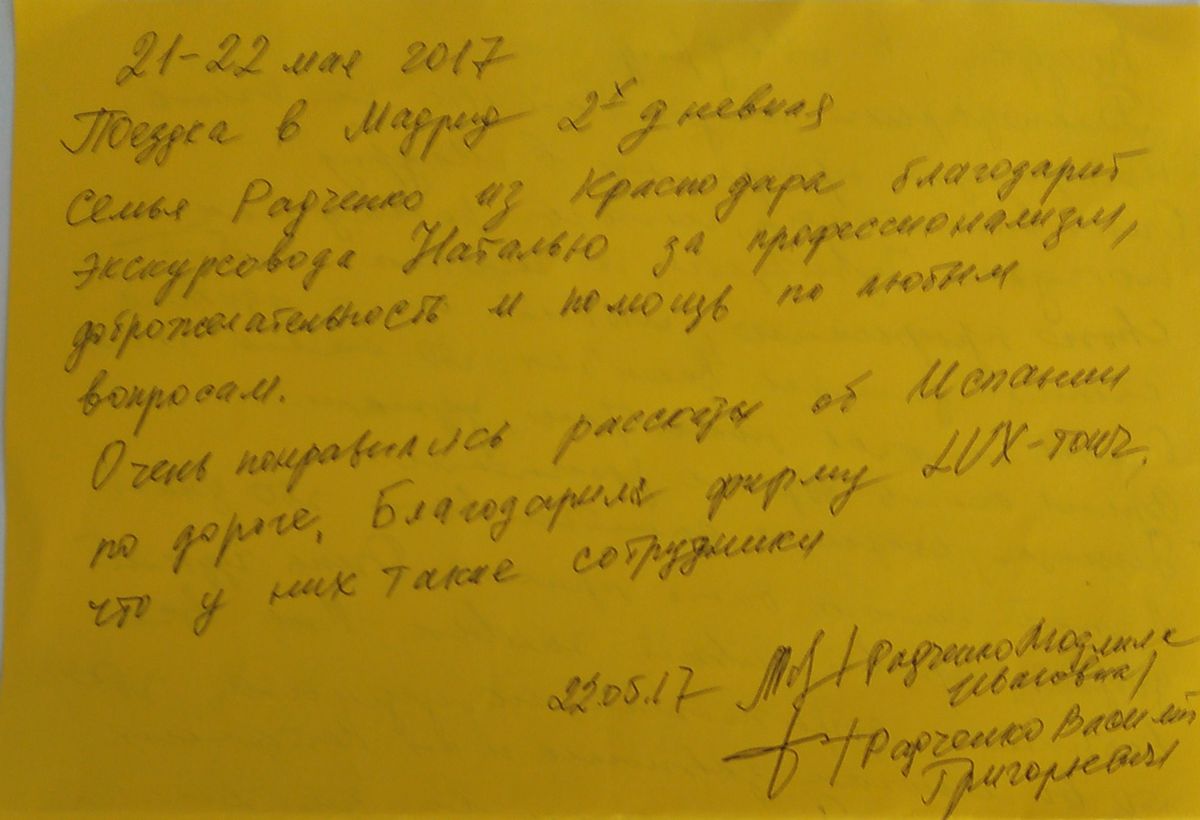 21-22 мая 2017
Поездка в Мадрид 2х дневная
семья Радченко из Краснодара благодарит
экскурсовода Наталью за профессионализм,
доброжелательность и помощь по любым
вопросам.
Очень понравились рассказы об Испании
по дороге. Благодарим фирму LUX-тоиг,
что у них такие сотрудники
22.05.17 /Радченко Людмила
Ивановна/
/Радченко Василий
Григорьевич/